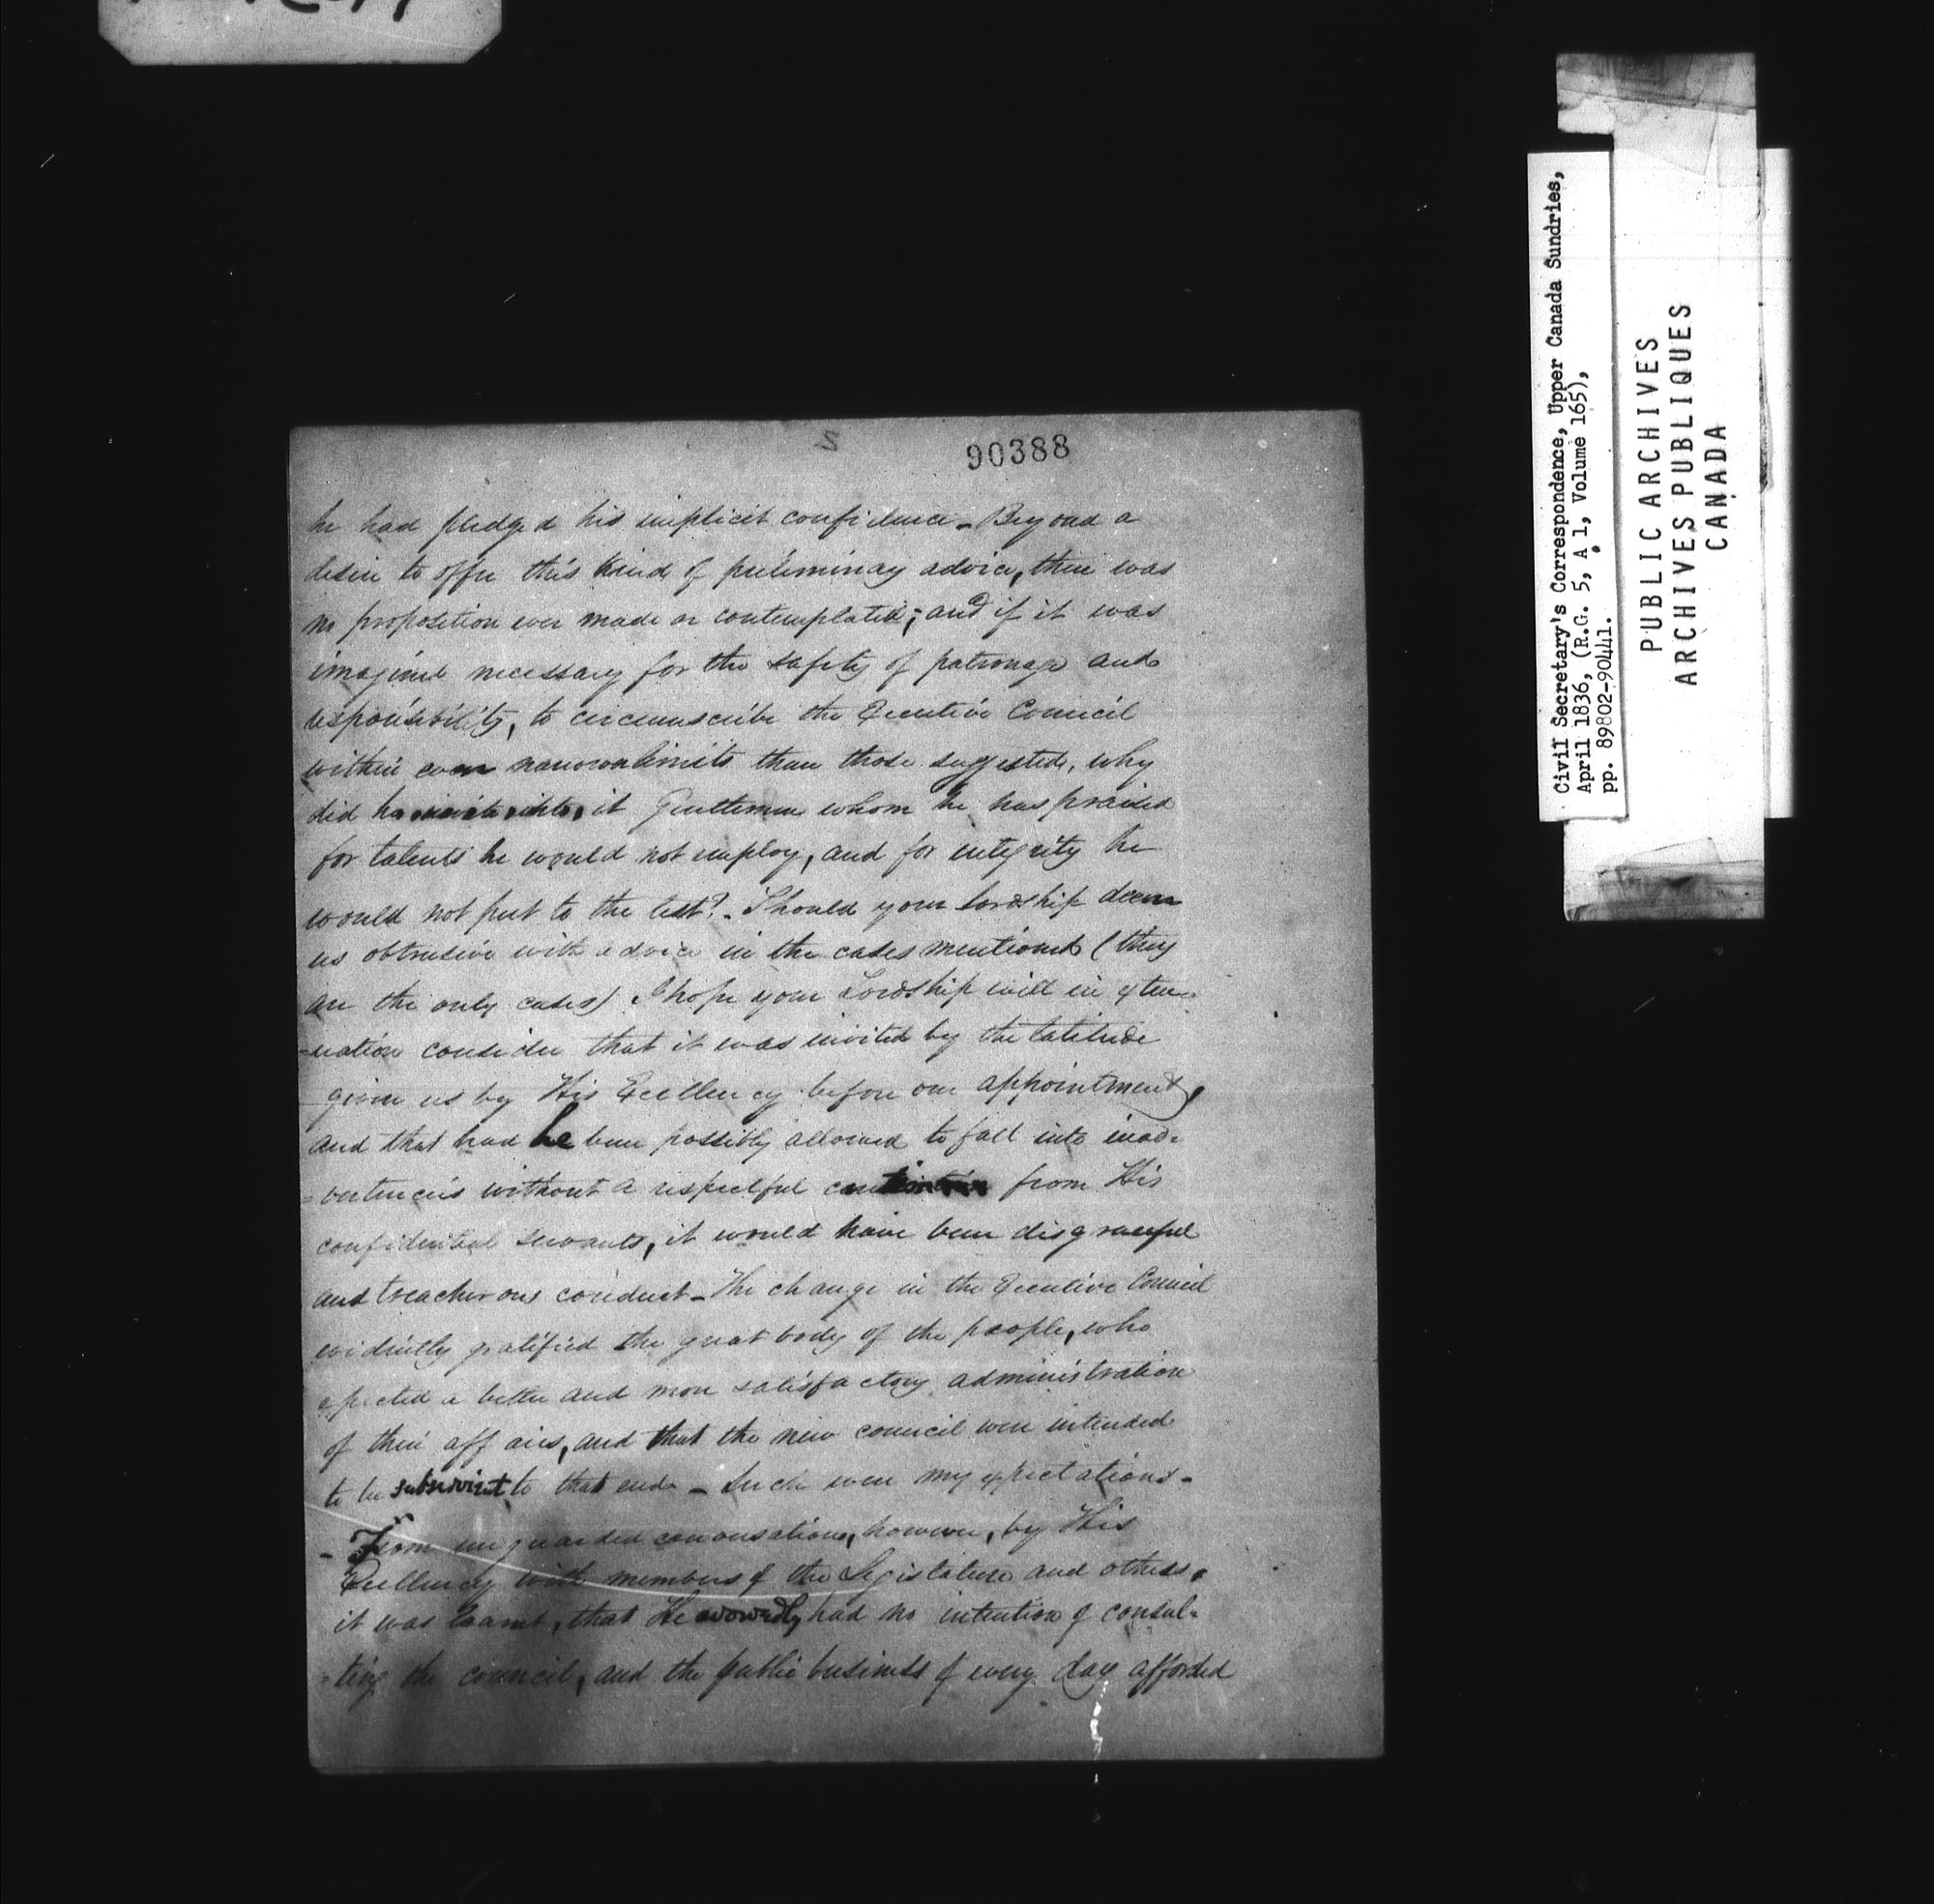 90388
he had pledged his implicit confidence - Beyond a
desire to offer this kind of preliminary advice, there was
no proposition ever made or contemplated; and if it was
imagined necessary for the safety of patronage and
responsibility, to circumscribe the Executive Council
within even narrower limits than those suggested, why
did he invite into it Gentlemen whom he has praised
for talents he would not employ, and for integrity he
would not put to the test? - Should your Lordship deem
us obtrusive with advice in the cases mentioned (they
are the only cases) I hope your Lordship will in exten-
-uation consider that it was invited by the latitude
given us by His Excellency before our appointment,
and that had he been possibly allowed to fall into inad-
-vertencies without a respectful caution from His
confidential servants, it would have been disgraceful
and treacherous conduct - The change in the Executive Council
evidently gratified the great body of the people, who
expected a better and more satisfactory administration
of their affairs, and that the new council were intended
to be subservient to that end - Such were my expectations -
- From unguarded conversations, however, by His
Excellency with members of the Legislature and others,
it was learnt, that He avowedly had no intention of consul-
-ting the council, and the public business of every day afforded
Civil Secretary's Correspondence, Upper Canada Sundries,
April 1836, (R.G. 5, A 1, Volume 165),
pp. 89802-90441.
PUBLIC ARCHIVES
ARCHIVES PUBLIQUES
CANADA